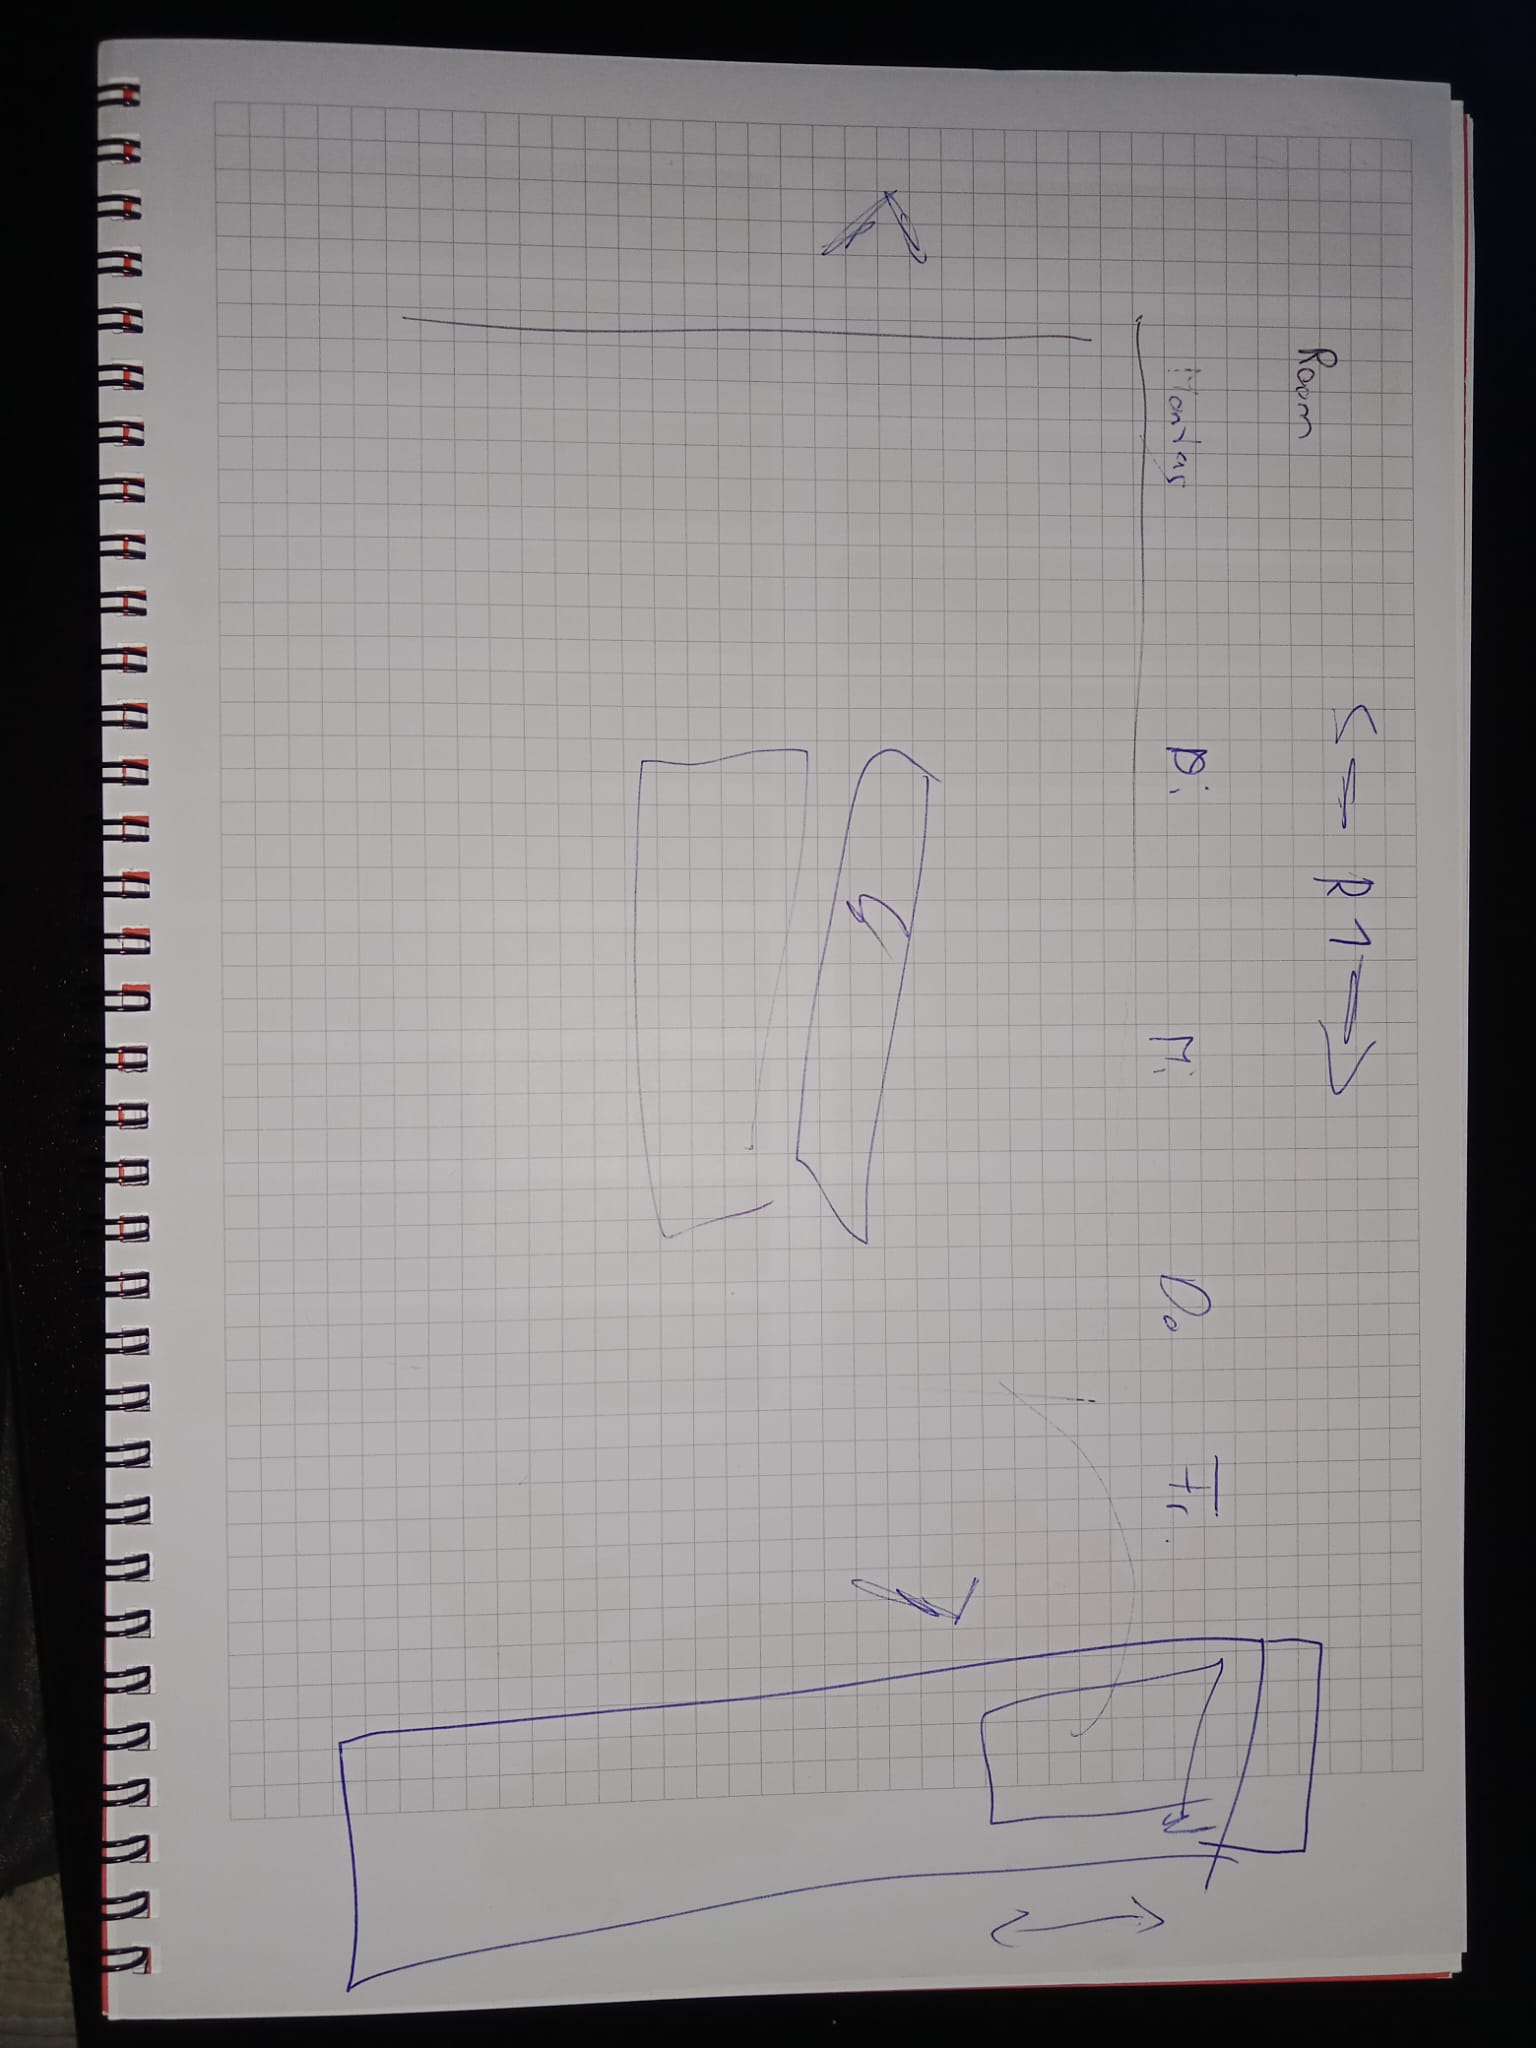 Room <- R1 ->
Montag Di. Mi. Do Fr.